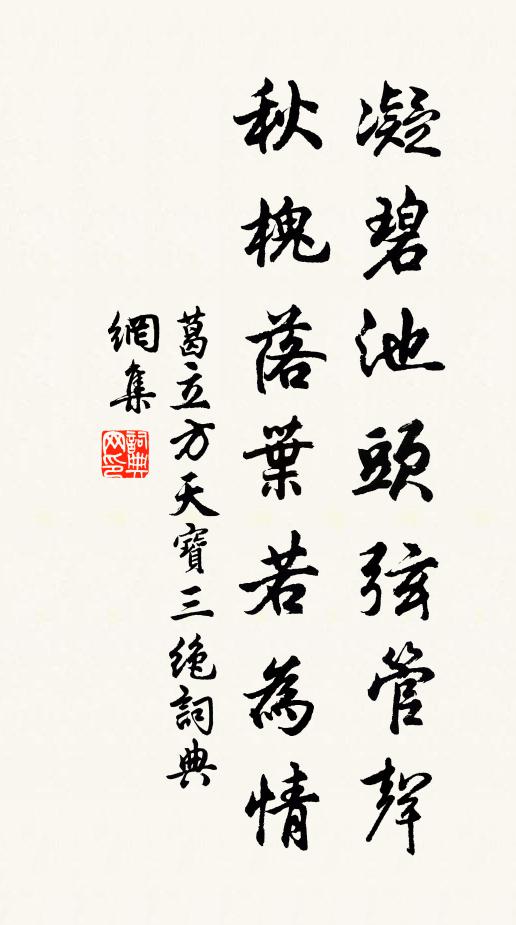 凝碧池頭弦管聲
秋槐落葉若為情
葛立方天寶三絶詞典
網集
詞典網印